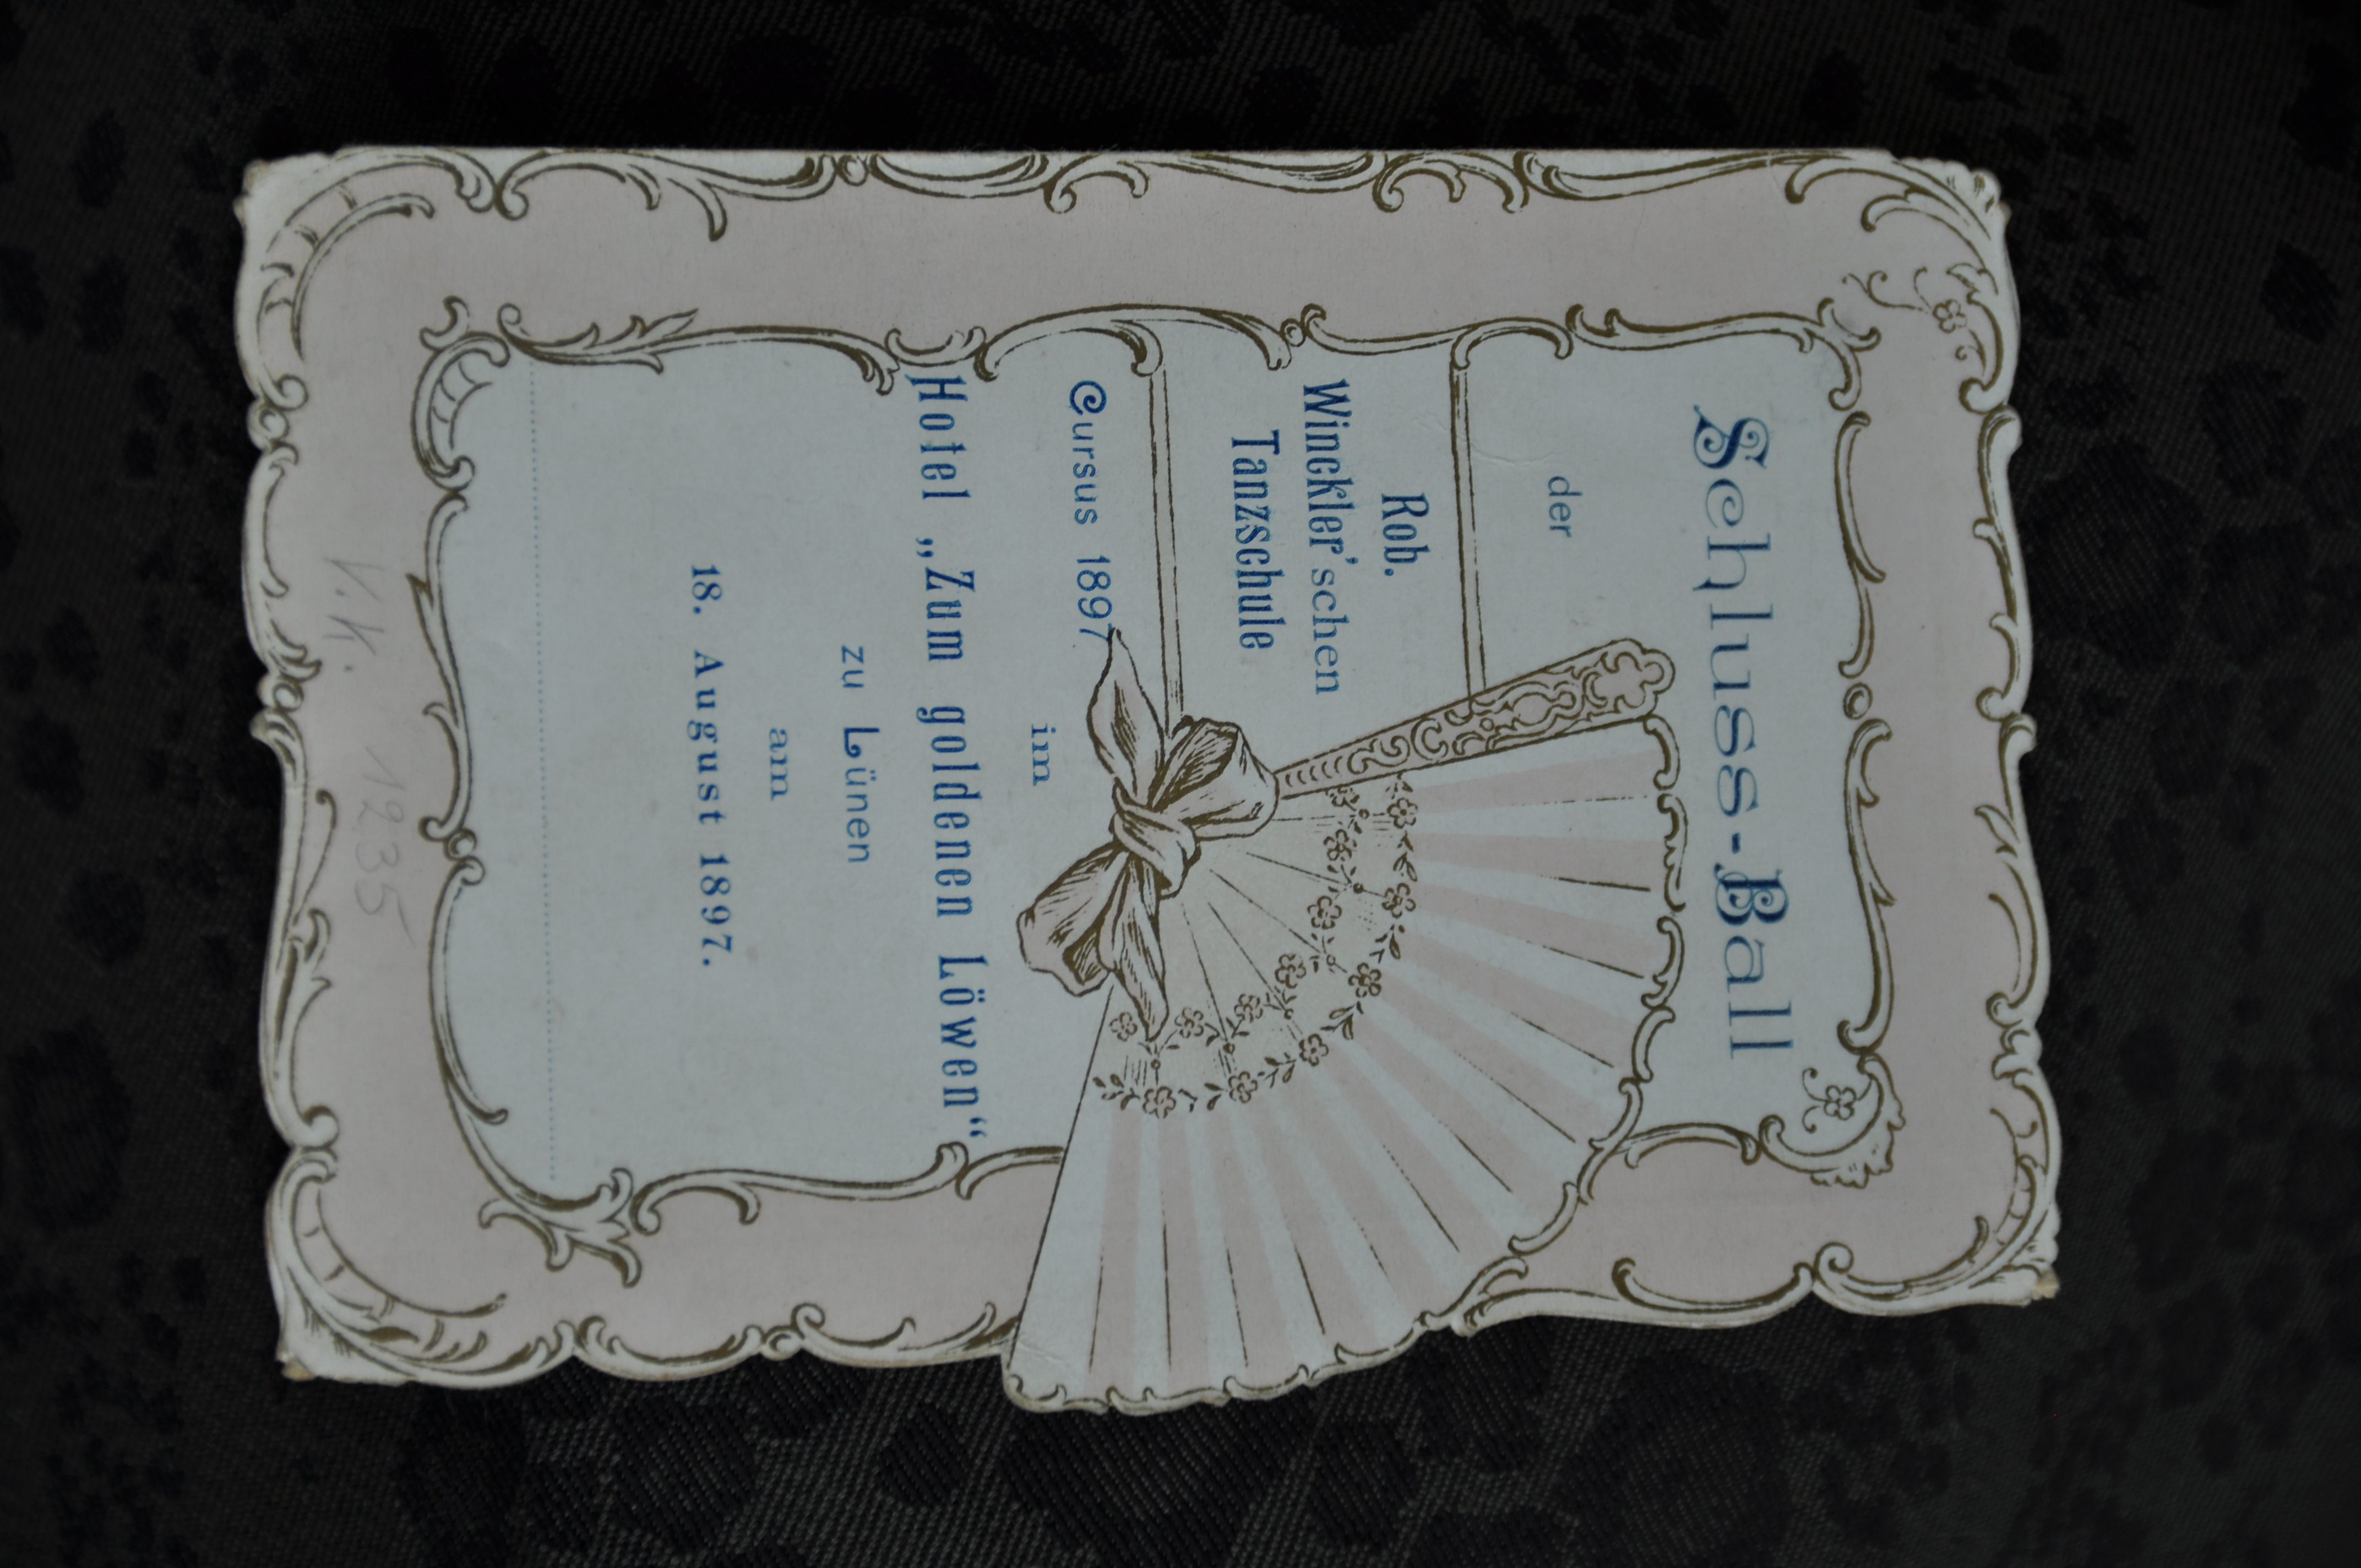 Schluss-Ball
der
Rob.
Winckler'schen
Tanzschule
Cursus 1897
im
Hotel „Zum goldenen Löwen“
zu Lünen
am
18. August 1897.
V.K. 1235